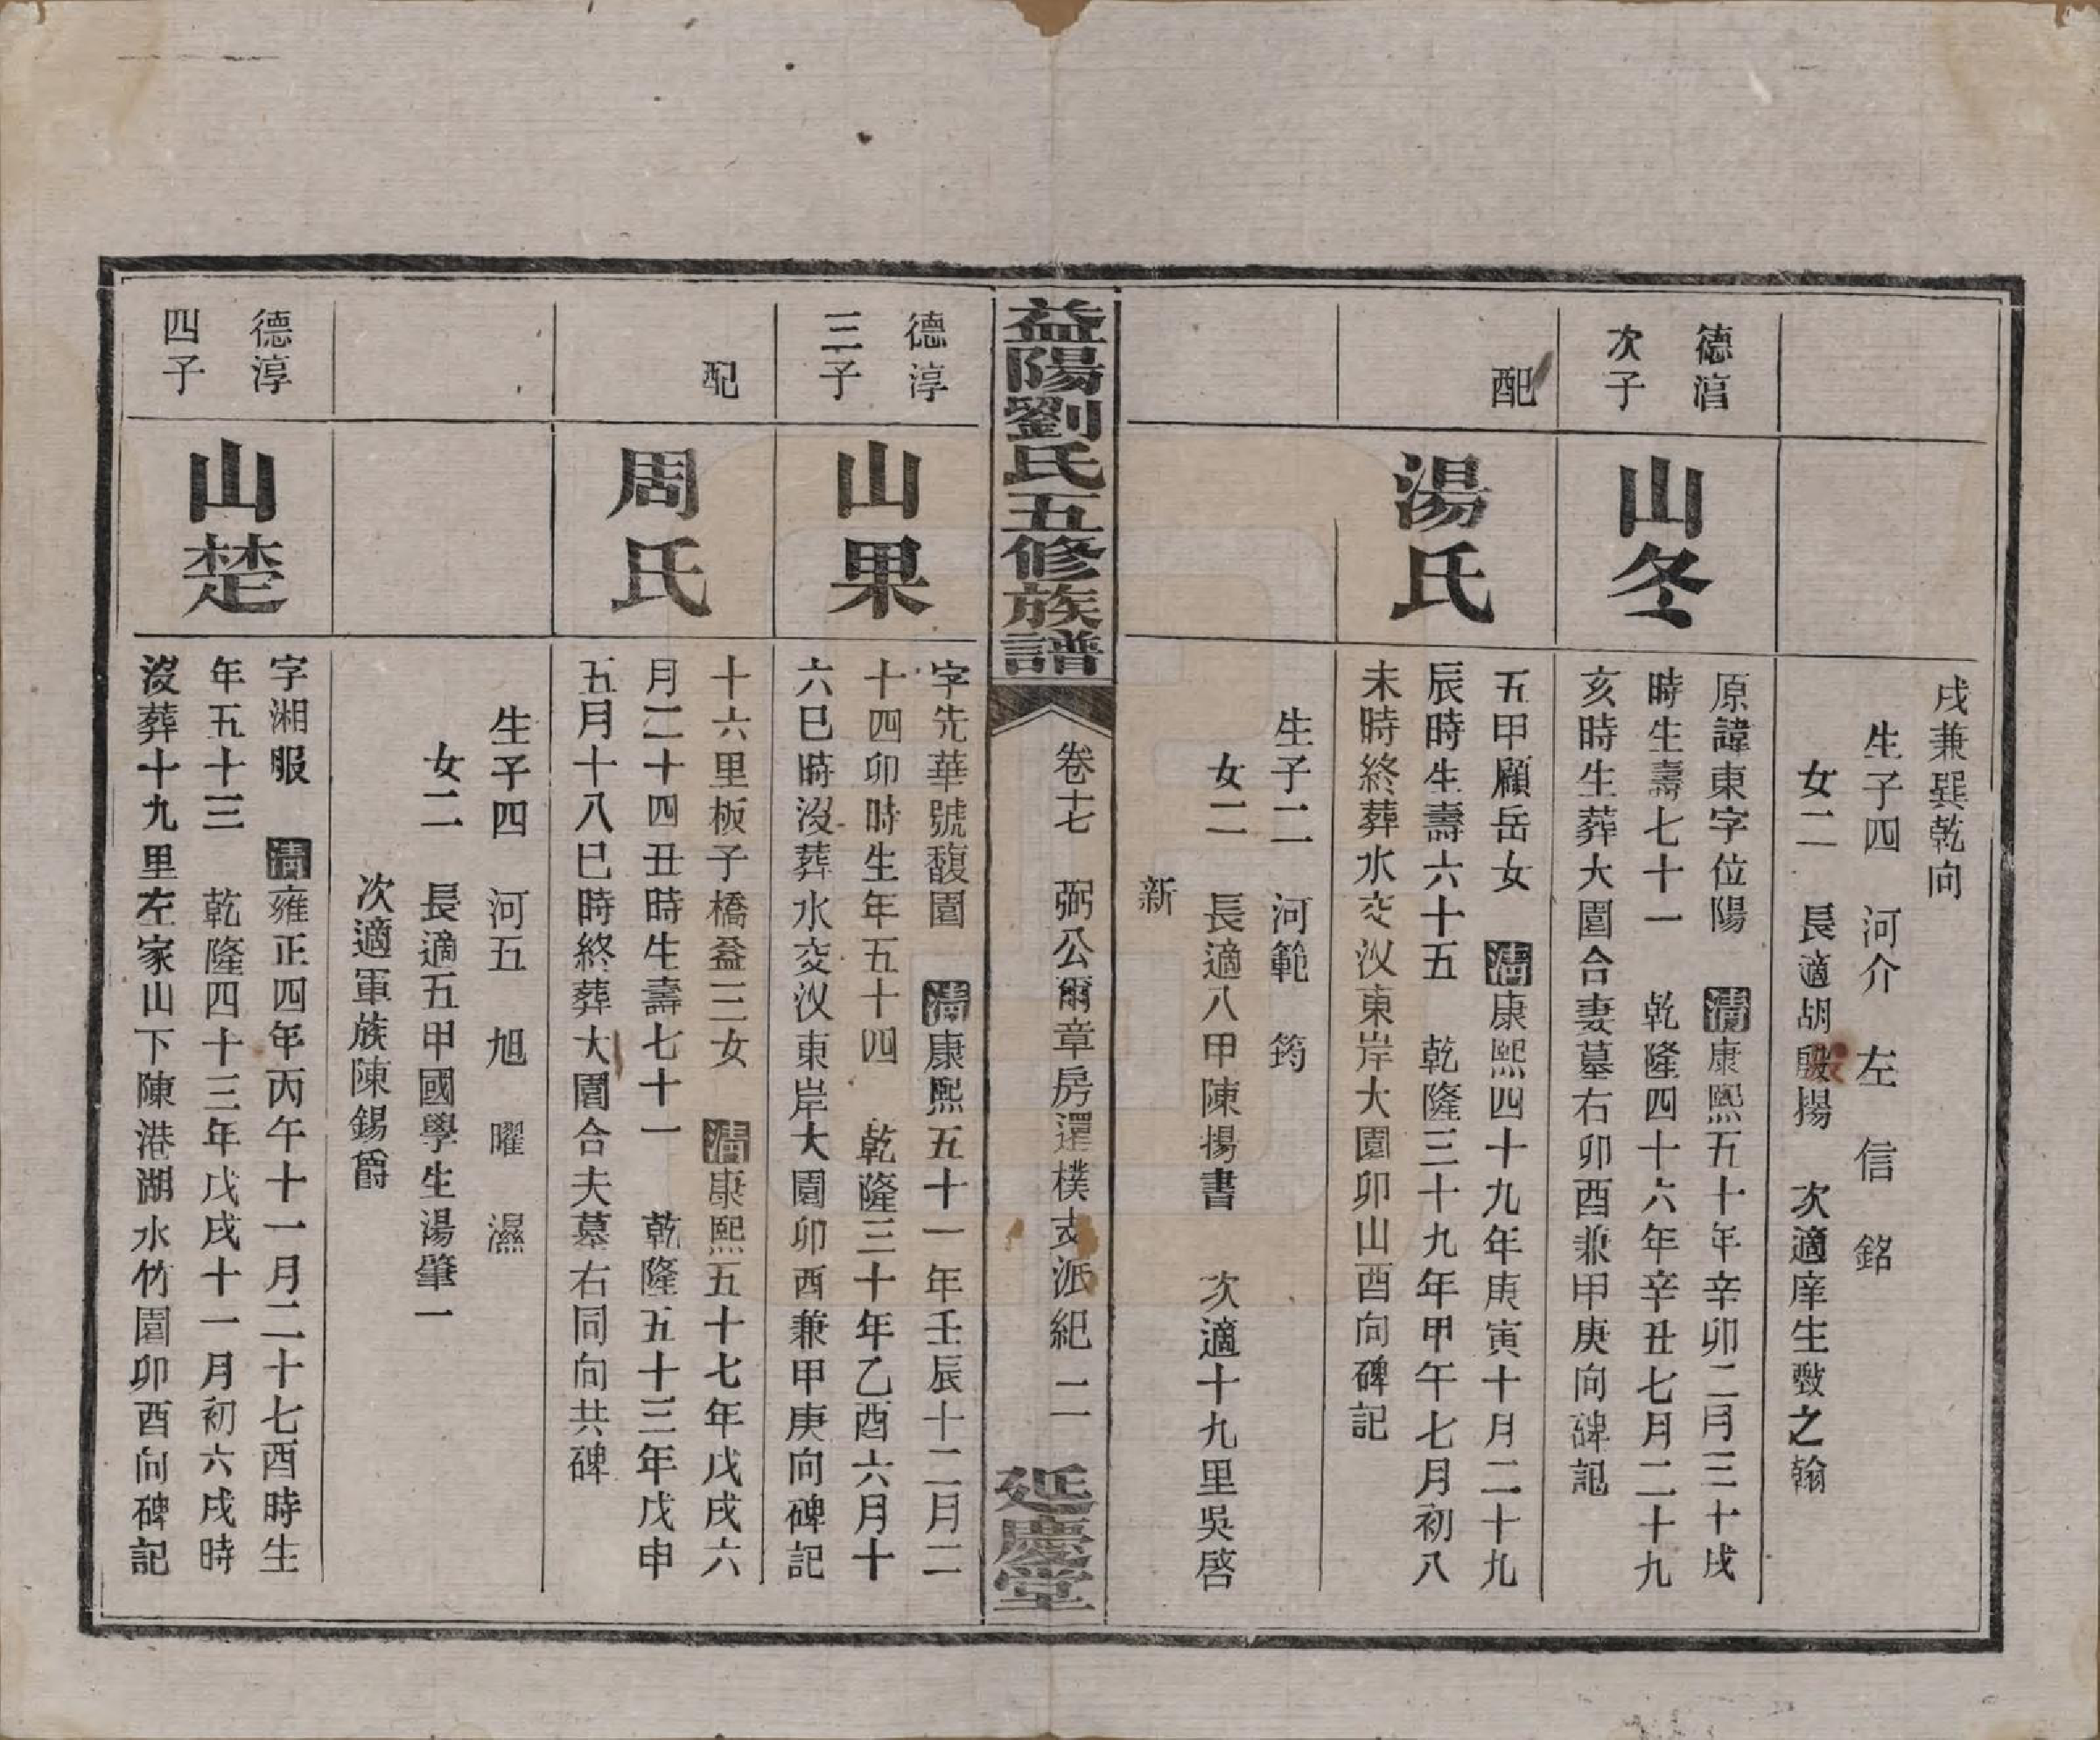 戌兼巽乾向
生子四　河介　左　信　銘
女二　長適胡殿揚　次適庠生　之翰
德淳
次子
山冬
原諱東字位陽　清康熙五十年辛卯二月三十戌
時生壽七十一　乾隆四十六年辛丑七月二十九
亥時生葬大園合妻墓右卯酉兼甲庚向碑記
配
湯氏
五甲顧岳女　清康熙四十九年庚寅十月二十九
辰時生壽六十五　乾隆三十九年甲午七月初八
未時終葬水交汊東岸大園卯山酉向碑記
生子二　河範　筠
女二　長適八甲陳揚書　次適十九里吳啓
新
益陽劉氏五修族譜
卷十七　弼公爾章房還樸支派紀　二
延慶堂
德淳
三子
山果
字先華號馥園　清康熙五十一年壬辰十二月二
十四卯時生年五十四　乾隆三十年乙酉六月十
六巳時沒葬水交汊東岸大園卯酉兼甲庚向碑記
配
周氏
十六里板子橋益三女　清康熙五十七年戊戌六
月二十四丑時生壽七十一　乾隆五十三年戊申
五月十八巳時終葬大園合夫墓右同向共碑
生子四　河五　旭　曜　濕
女二　長適五甲國學生湯肇一
次適軍族陳錫爵
德淳
四子
山楚
字湘服　清雍正四年丙午十一月二十七酉時生
年五十三　乾隆四十三年戊戌十一月初六戌時
沒葬十九里左家山下陳港湖水竹園卯酉向碑記